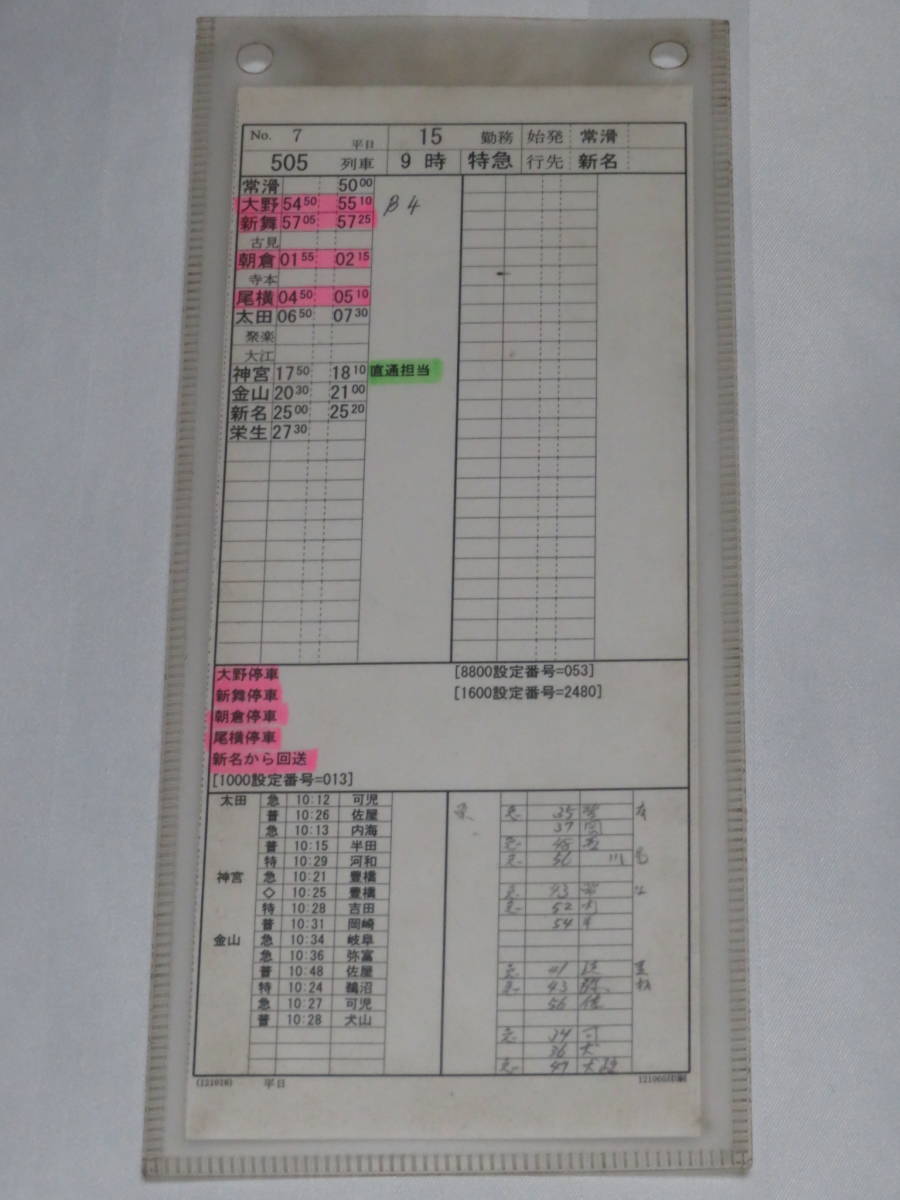 No. 7 平日 15 勤務 始発 常滑
505 列車 9 時 特急 行先 新名
常滑 50 00
大野 54 50 55 10 β4
新舞 57 05 57 25
古見
朝倉 01 55 02 15
寺本
尾横 04 50 05 10
太田 06 50 07 30
聚楽
大江
神宮 17 50 18 10 直通担当
金山 20 30 21 00
新名 25 00 25 20
栄生 27 30
大野停車 [8800設定番号=053]
新舞停車 [1600設定番号=2480]
朝倉停車
尾横停車
新名から回送
[1000設定番号=013]
太田 急 10:12 可児
普 10:26 佐屋 35
急 10:13 内海 37
普 10:15 半田
特 10:29 河和 56
神宮 急 10:21 豊橋
◇ 10:25 豊橋 43
特 10:28 吉田 52
普 10:31 岡崎 54
金山 急 10:34 岐阜
急 10:36 弥富
普 10:48 佐屋 41
特 10:24 鵜沼 43
急 10:27 可児 56
普 10:28 犬山
34
36 犬
47
(121018) 平日